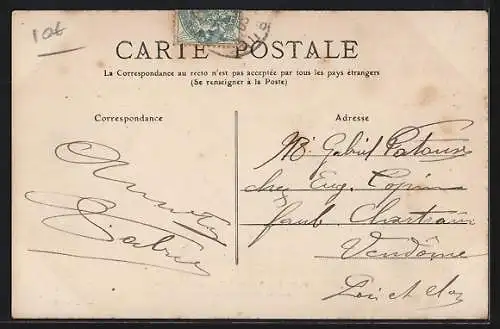 10f
CARTE POSTALE
La Correspondance au recto n'est pas acceptée par tous les pays étrangers
(Se renseigner à la Poste)
Correspondance
Adresse
Mr Gabriel
chez Eug. Copin
faub. Chartrain
Vendôme
Loir et Cher